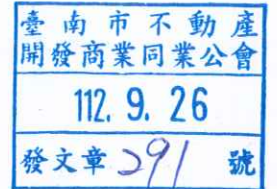 臺南市不動產
開發商業同業公會
112. 9. 26
發文章291號